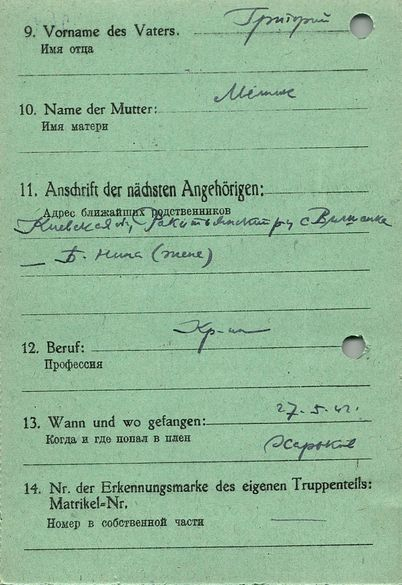 9. Vorname des Vaters. Григорий
Имя отца
10. Name der Mutter:
Имя матери
11. Anschrift der nächsten Angehörigen:
Адрес ближайших родственников
Киевская
Б. Нина (жене)
12. Beruf: Кр-ин
Профессия
13. Wann und wo gefangen: 27.5.42.
Когда и где попал в плен Харьков
14. Nr. der Erkennungsmarke des eigenen Truppenteils:
Matrikel-Nr.
Номер в собственной части